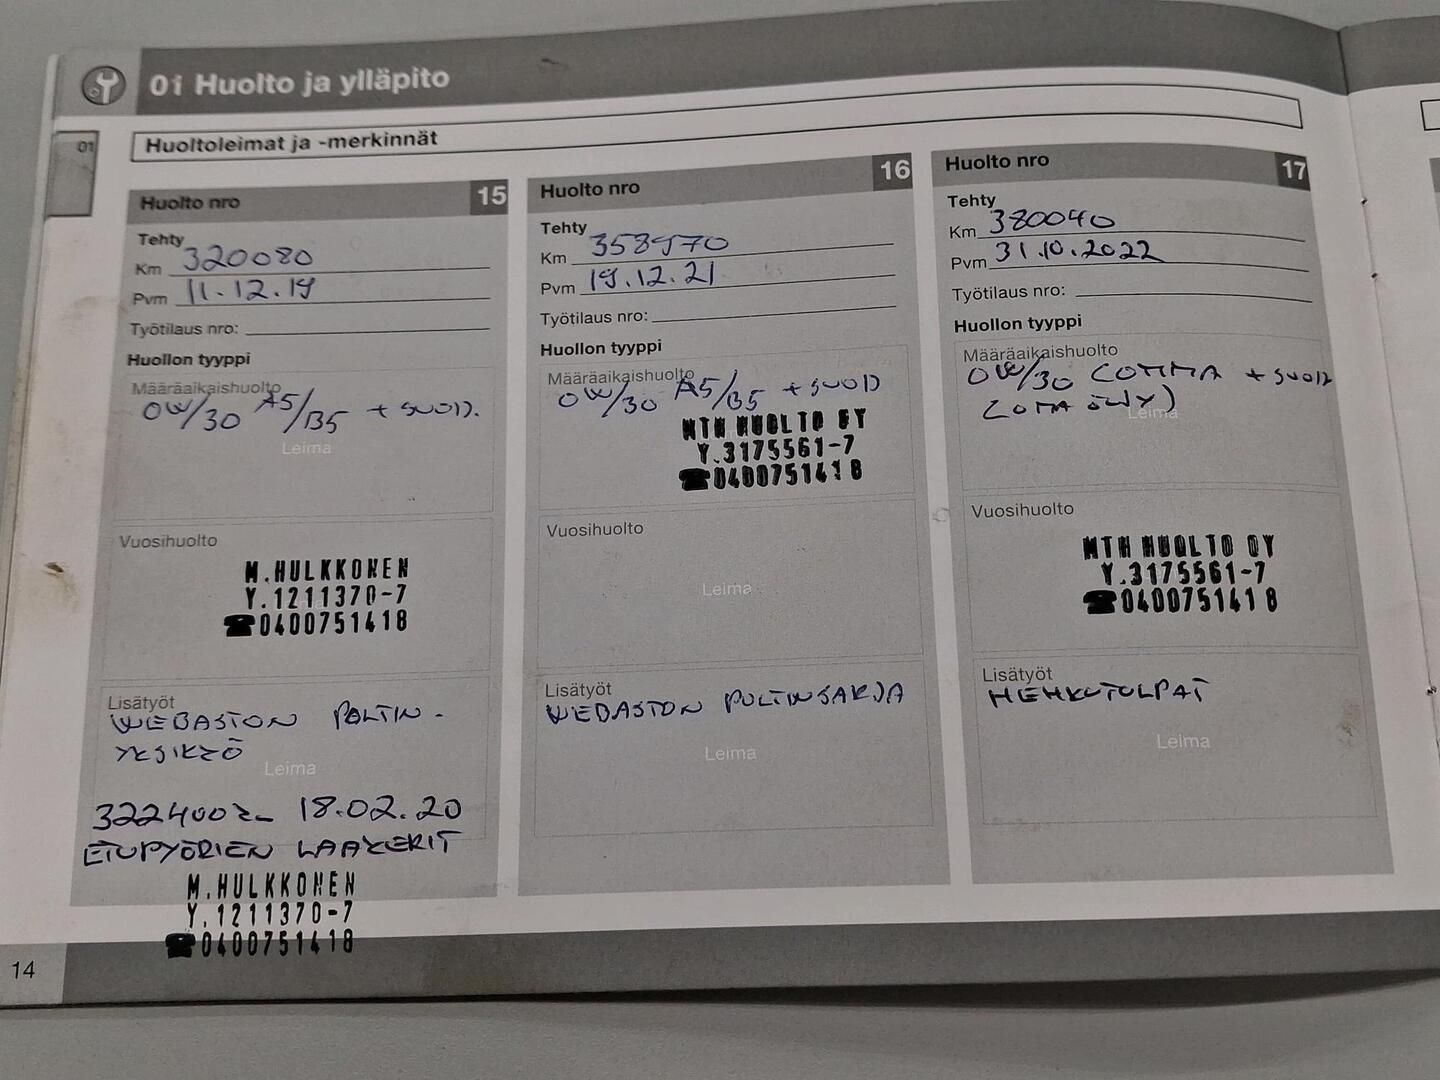 01 Huolto ja ylläpito
01
Huoltoleimat ja -merkinnät
Huolto nro 15
Tehty
Km 320080
Pvm 11.12.19
Työtilaus nro:
Huollon tyyppi
Määräaikaishuolto
0W/30 A5/B5 + SUOD.
Leima
Vuosihuolto
M.HULKKONEN
Y.1211370-7
☎0400751418
Lisätyöt
WEBASTON POLTIN-
YKSIKKÖ
Leima
322400 18.02.20
ETUPYÖRIEN LAAKERIT
M.HULKKONEN
Y.1211370-7
☎0400751418
14
Huolto nro 16
Tehty
Km 358970
Pvm 19.12.21
Työtilaus nro:
Huollon tyyppi
Määräaikaishuolto
0W/30 A5/B5 + SUOD
MTH HUOLTO OY
Y.3175561-7
☎0400751418
Vuosihuolto
Leima
Lisätyöt
WEBASTON POLTINSARJA
Leima
Huolto nro 17
Tehty
Km 380040
Pvm 31.10.2022
Työtilaus nro:
Huollon tyyppi
Määräaikaishuolto
0W/30 COMMA + SUOD
(OMA ÖLJY)
Leima
Vuosihuolto
MTH HUOLTO OY
Y.3175561-7
☎0400751418
Lisätyöt
HEHKUTULPAT
Leima